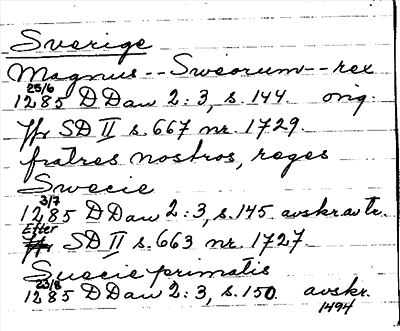 Sverige
Magnus -- Sweorum -- rex
25/6
1285 DDan 2:3, s. 144. orig.
Jfr SD II s. 667 nr. 1729.
fratres nostros, reges
Swecie
3/7
1285 DDan 2:3, s. 145 avskr av tr.
Efter
SD II s. 663 nr. 1727.
Suecie primatis
23/8
1285 DDan 2:3, s. 150. avskr.
1494